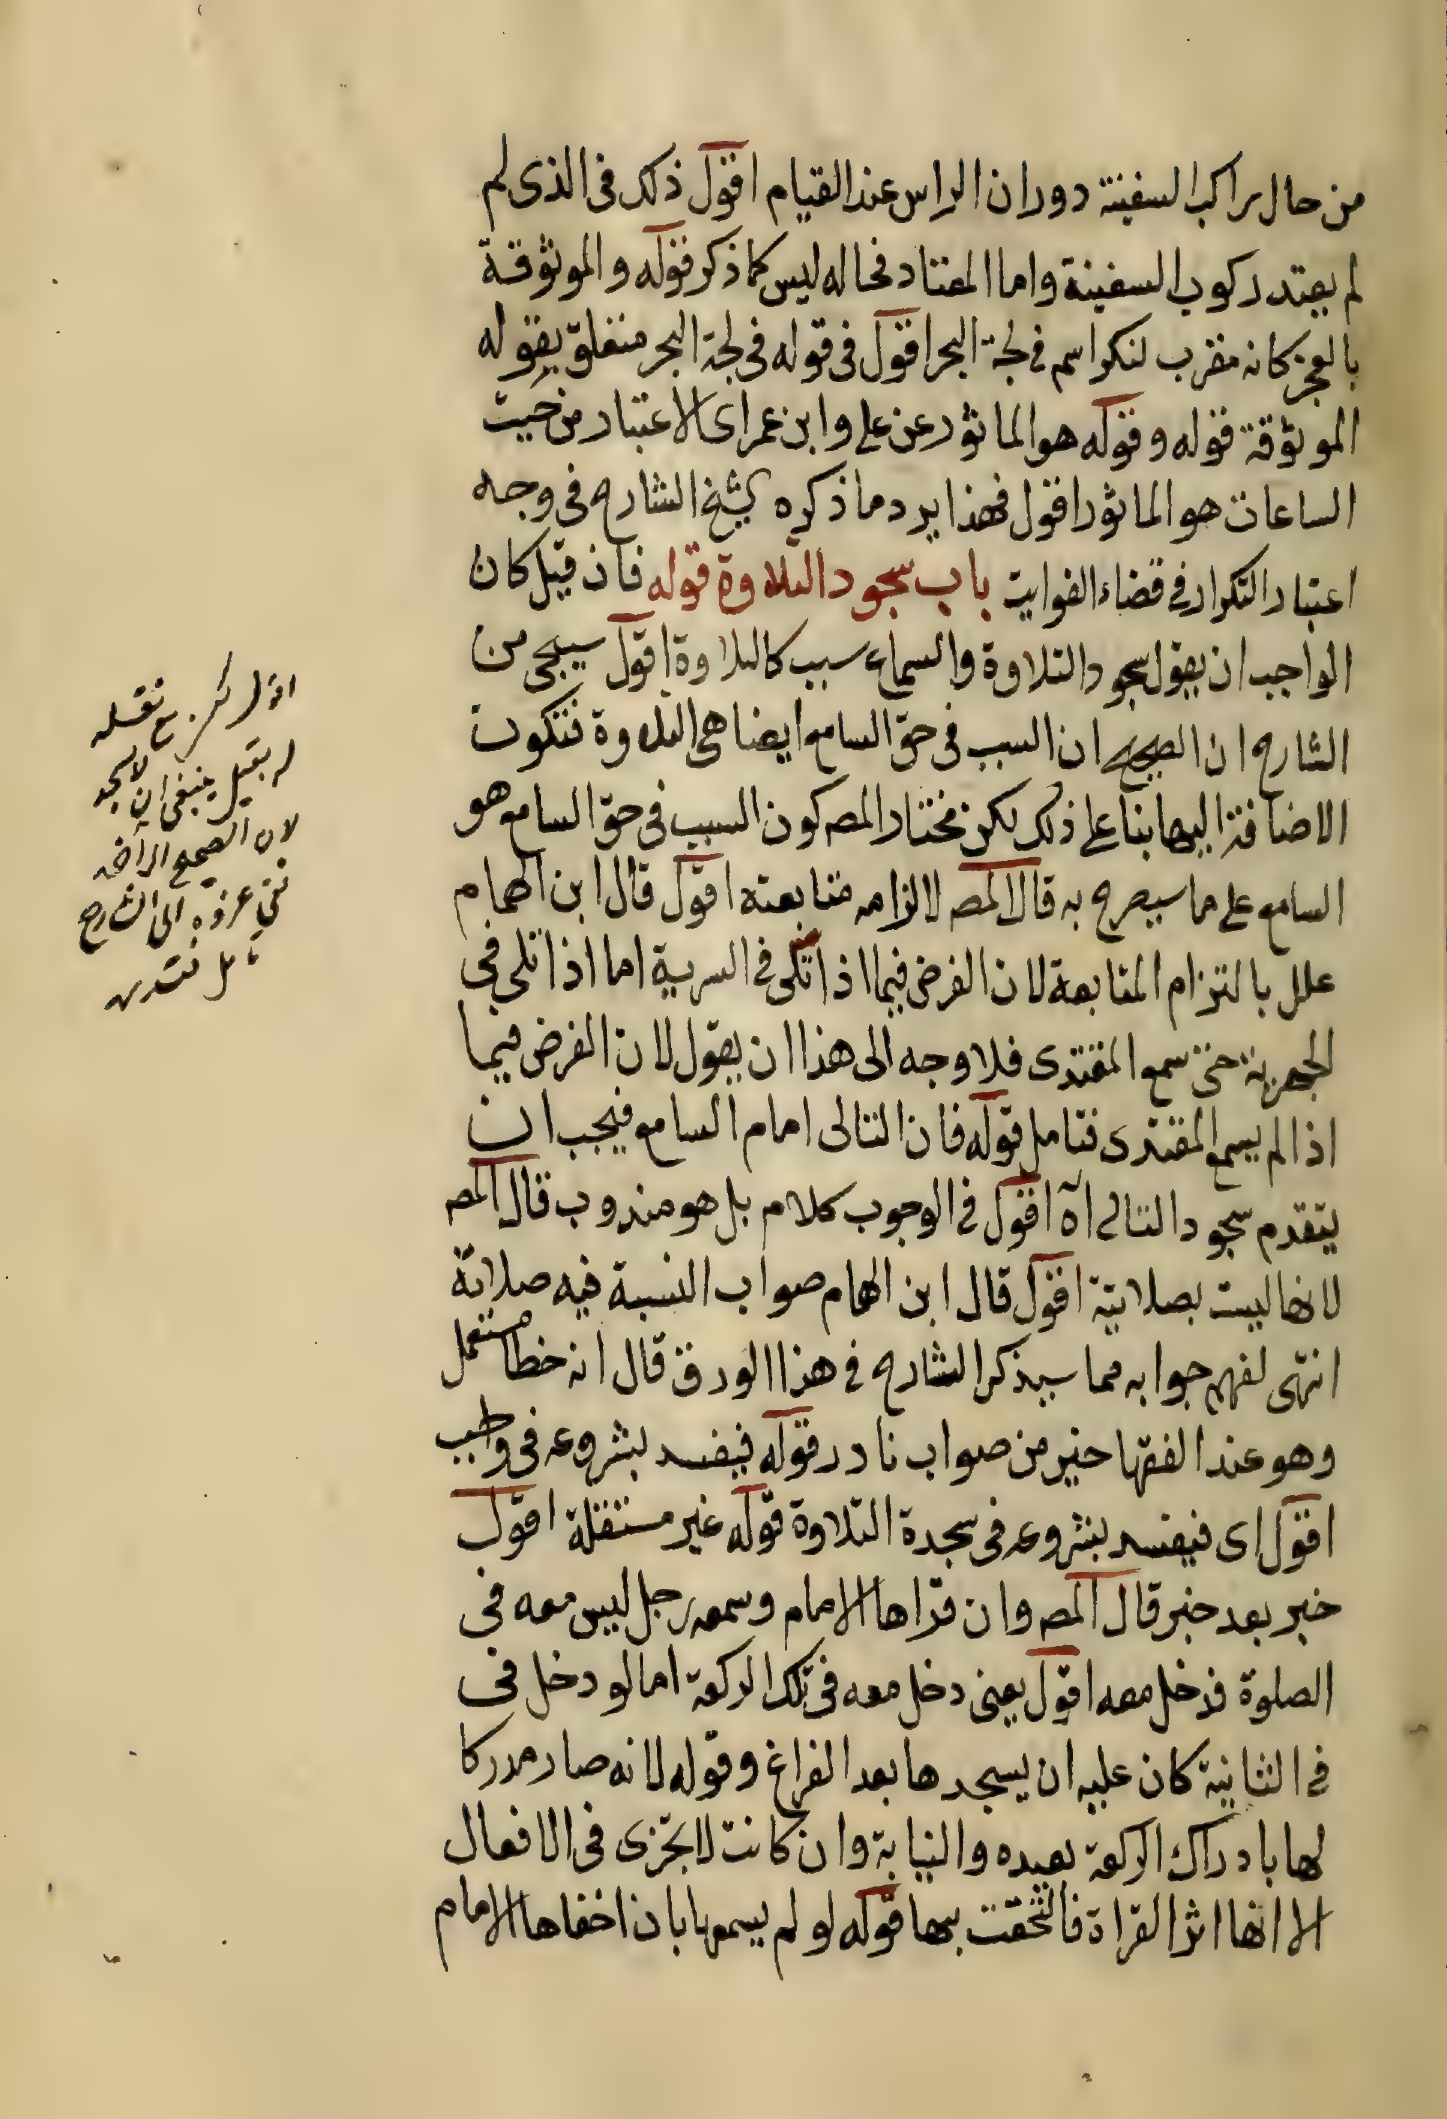 من حال راكب السفينة دوران الراس عند القيام اقول ذلك فى الذى لم
لم يعتد ركوب السفينة واما المعتاد فحاله ليس كما ذكر قوله والموثوقة
بالعجز كانه مقرب لنكر اسم فى لجة البحر اقول فى قوله فى لجة البحر متعلق بقوله
الموثوقة قوله وقوله هو الماثور عن على وابن عمر اى الاعتبار من حيث
الساعات هو الماثور اقول فهذا يرد ما ذكره الشارح فى وجه
اعتبار التكرار فى قضاء الفوايت باب سجود التلاوة قوله فان قيل كان
الواجب ان يقول سجود التلاوة والسماع سبب كالتلاوة اقول سيجى من
الشارح ان الصحيح ان السبب فى حق السامع ايضا هى التلاوة فتكون
الاضافة اليها بنا على ذلك لكن مختار المصـ كون السبب فى حق السامع هو
السامع على ما سيصرح به قال المصـ لالزامه متابعته اقول قال ابن الهمام
علل بالتزام المتابعة لان الفرض فيما اذا تلى فى السرية اما اذا تلى فى
الجهرية حتى سمع المقتدى فلا وجه الى هذا ان يقول لان الفرض فيما
اذا لم يسمع المقتدى فتامل قوله فان التالى امام السامع فيجب ان
يتقدم سجود التالى اه اقول فى الوجوب كلام بل هو مندوب قال المصـ
لانها ليست بصلاتية اقول قال ابن الهمام صواب النسبة فيه صلاتة
انتهى لفهم جوابه مما سيذكر الشارح فى هذا الورق قال انه خطا مستعمل
وهو عند الفقها خير من صواب نادر قوله فيفسد بشروعه فى واجب
اقول اى فيفسد بشروعه فى سجدة التلاوة قوله غير مستقلة اقول
خبر بعد خبر قال المصـ وان قراها الامام وسمعه رجل ليس معه فى
الصلوة فدخل معه اقول يعنى دخل معه فى تلك الركعة اما لو دخل فى
فى الثانية كان عليه ان يسجدها بعد الفراغ وقوله لانه صار مدركا
لها بادراك الركعة بعيده والنيابة وان كانت لا تجزى فى الافعال
الا انها اثر القراة فالتحقت بها قوله لو لم يسمعها بان اخفاها الامام
اقول نقله
ينبغى ان لا يسجد
لان الصحيح
عزوه الى الشارح